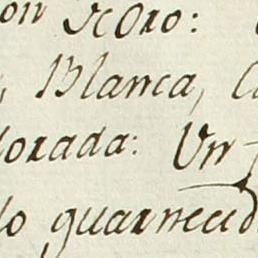 on de Oro:
, Blanca, C
lorada: Un
lo guarnecid